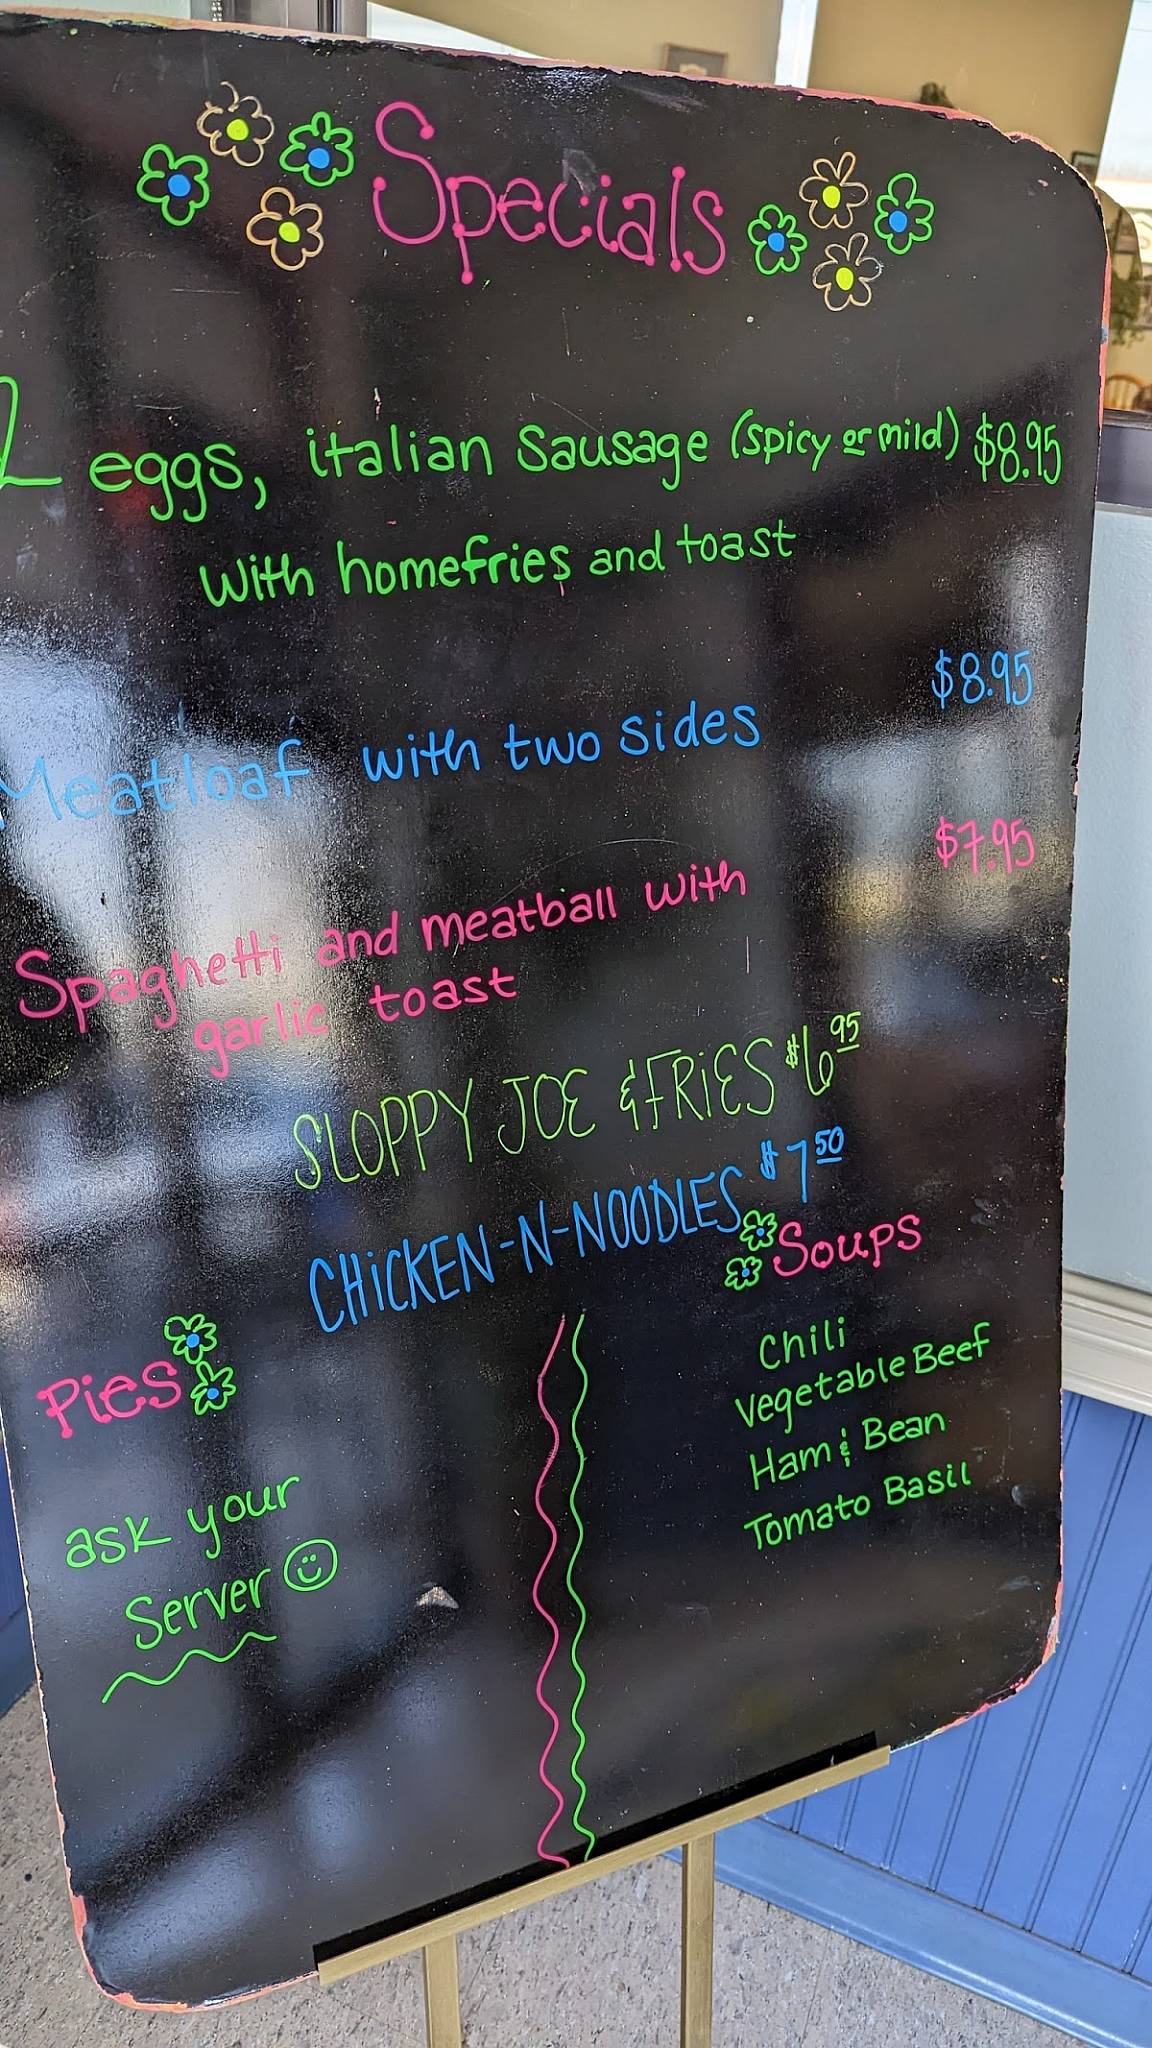 Specials
2 eggs, italian sausage (spicy or mild) $8.95
with homefries and toast
Meatloaf with two sides $8.95
Spaghetti and meatball with $7.95
garlic toast
SLOPPY JOE & FRiES $6 95
CHiCKEN-N-NOODLES $7 50
Pies
ask your
Server
Soups
Chili
vegetable Beef
Ham & Bean
Tomato Basil